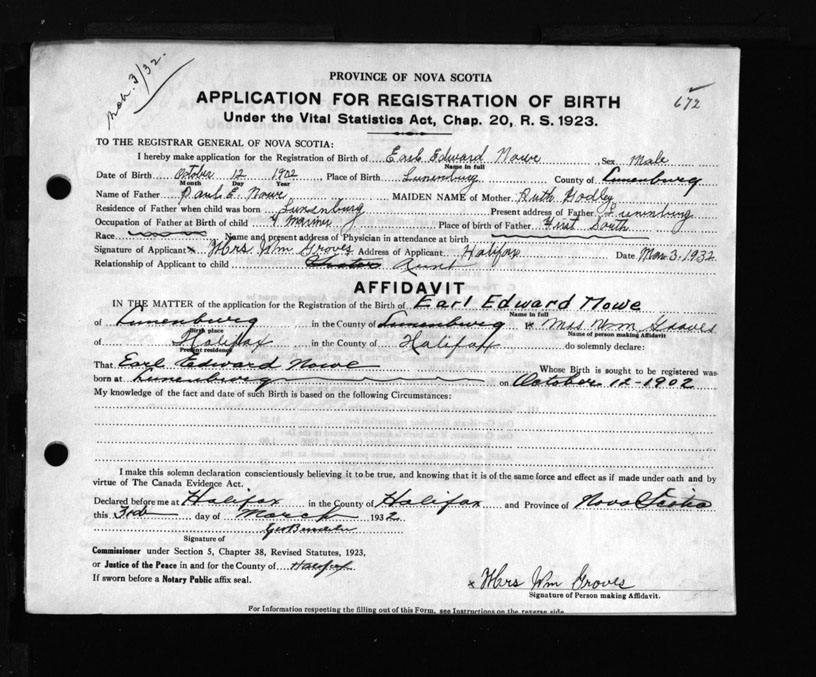 Mch. 3/32.
672
PROVINCE OF NOVA SCOTIA
APPLICATION FOR REGISTRATION OF BIRTH
Under the Vital Statistics Act, Chap. 20, R. S. 1923.
TO THE REGISTRAR GENERAL OF NOVA SCOTIA:
I hereby make application for the Registration of Birth of Earl Edward Nowe Sex Male
Name in full
Date of Birth October 12 1902 Place of Birth Lunenburg County of Lunenburg
Month Day Year
Name of Father Paul E. Nowe MAIDEN NAME of Mother Ruth
Residence of Father when child was born Lunenburg Present address of Father Lunenburg
Occupation of Father at Birth of child Mariner Place of birth of Father First South
Race Name and present address of Physician in attendance at birth
Signature of Applicant x Mrs Wm Groves Address of Applicant Halifax Date Mar 3. 1932
Relationship of Applicant to child Aunt
AFFIDAVIT
IN THE MATTER of the application for the Registration of the Birth of Earl Edward Nowe
Name in full
of Lunenburg , in the County of Lunenburg I, Mrs Wm Groves
Birth place Name of person making Affidavit
of Halifax , in the County of Halifax do solemnly declare:
Present residence
That Earl Edward Nowe Whose Birth is sought to be registered was
born at Lunenburg on October 12-1902
My knowledge of the fact and date of such Birth is based on the following Circumstances:
I make this solemn declaration conscientiously believing it to be true, and knowing that it is of the same force and effect as if made under oath and by
virtue of The Canada Evidence Act.
Declared before me at Halifax in the County of Halifax and Province of Nova Scotia
this 3rd day of March 1932
Signature of
Commissioner under Section 5, Chapter 38, Revised Statutes, 1923,
or Justice of the Peace in and for the County of Halifax
If sworn before a Notary Public affix seal.
x Mrs Wm Groves
Signature of Person making Affidavit.
For Information respecting the filling out of this Form, see Instructions on the reverse side